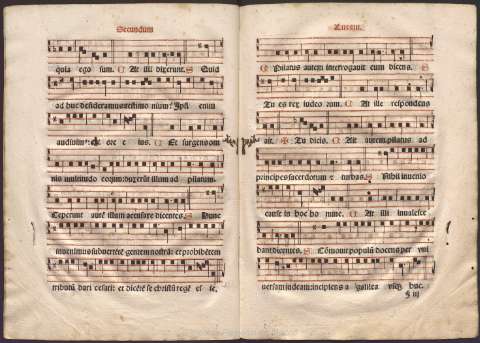 Secundum
quia ego sum. C At illi dixerunt. S Quid
ad huc desideramus testimonium? Ipsi enim
audiuimus de ore eius. C Et surgens om
nis multitudo eorum: duxerunt illum ad pilatum.
Ceperunt autē illum accusare dicentes. S Hunc
inuenimus subuertētē gentem nostrā: et prohibētem
tributa dari cesari: et dicētē se christū regē esse.
Lucam.
C Pilatus autem interrogauit eum dicens. S
Tu es rex iudeorum. C At ille respondens
ait. ✠ Tu dicis. C Ait autem pilatus ad
principes sacerdotum et turbas. S Nihil inuenio
cause in hoc homine. C At illi inualesce
bant dicentes. S Cōmouit populū docens per vni
uersam iudeam: incipiens a galilea vsqz huc.
iij